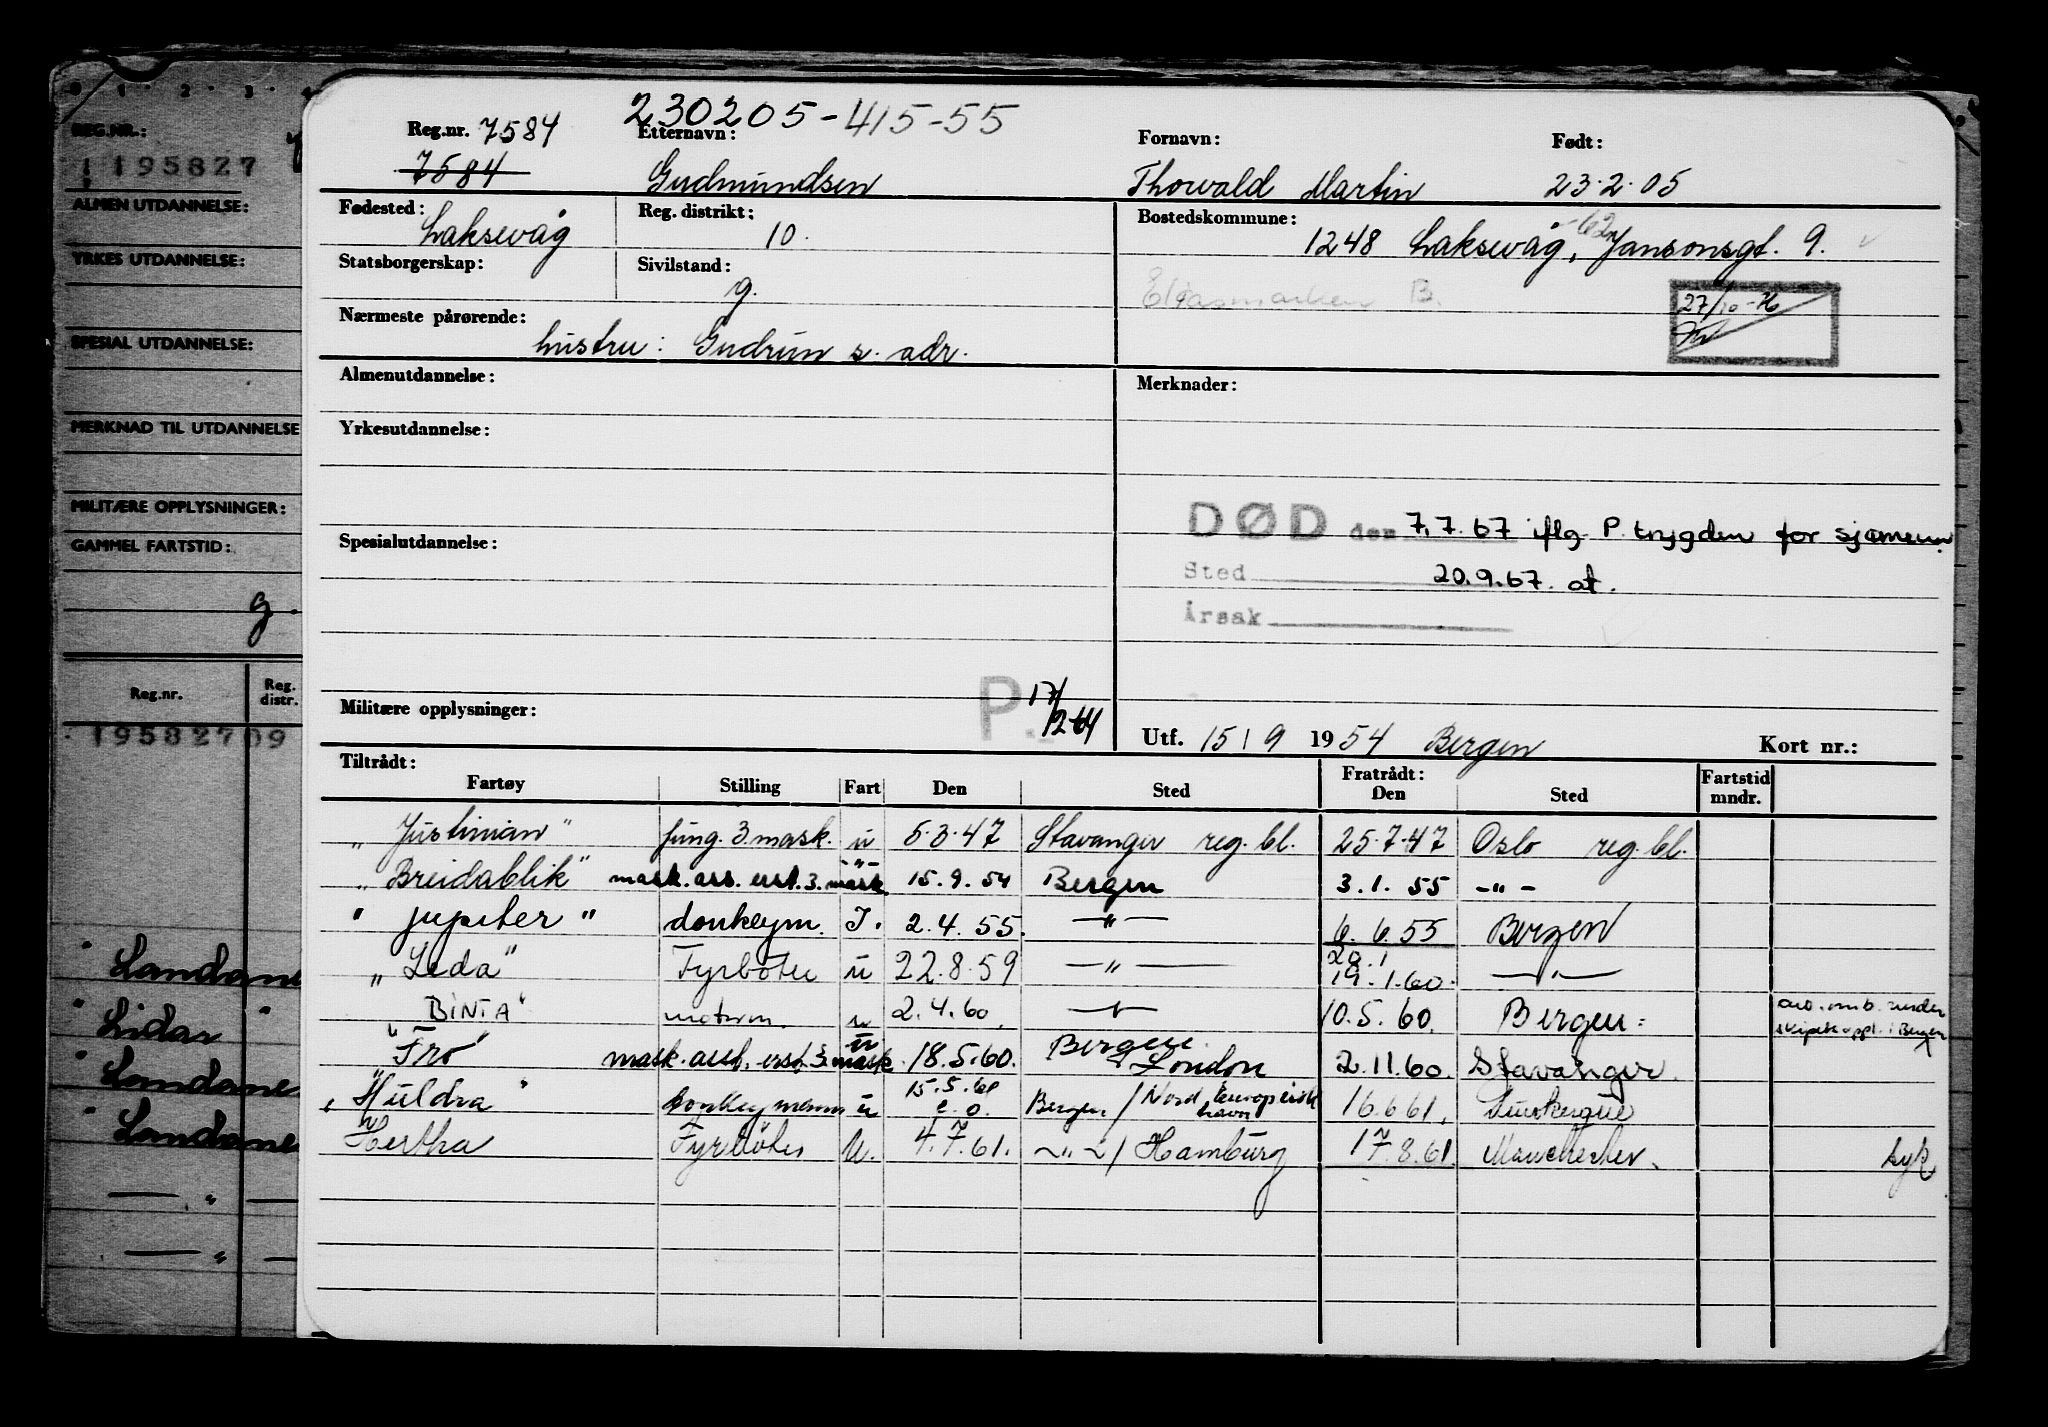 REG.NR.:
195827
ALMEN UTDANNELSE:
YRKES UTDANNELSE:
SPESIAL UTDANNELSE:
MERKNAD TIL UTDANNELSE
MILITÆRE OPPLYSNINGER:
GAMMEL FARTSTID:
g.
Reg.nr. Reg. distr.
19582709
" Landane
" Lidar "
" Landane
" Landane
— " —
— " —
230205-415-55
Reg.nr. 7584 Etternavn: Fornavn: Født:
7584 Gudmundsen Thorvald Martin 23.2.05
Fødested: Laksevåg Reg. distrikt: 10. Bostedskommune: -62
1248 Laksevåg, Jansonsgt. 9.
Statsborgerskap: Sivilstand: g.
Eliasmarken B.
27/10-76
Nærmeste pårørende:
hustru: Gudrun s. adr.
Almenutdannelse: Merknader:
Yrkesutdannelse:
DØD den 7.7.67 iflg. P. trygden for sjømenn
Spesialutdannelse:
Sted 20.9.67. at.
Årsak
P. 17/12-64
Militære opplysninger:
Utf. 15/9 1954 Bergen Kort nr.:
Tiltrådt: Fratrådt:
Fartøy Stilling Fart Den Sted Den Sted Fartstid mndr.
"Justinian" fung. 3. mask. u 5.3.47 Stavanger reg. bl. 25.7.47 Oslo reg. bl.
"Breidablik" mask. ass. erst. 3. mask. -"- 15.9.54 Bergen 3.1.55 -"-
"Jupiter" donkeym. I. 2.4.55. —"— 6.6.55 Bergen
"Leda" Fyrbøter u 22.8.59 —"— 20.1
19.1.60. —"—
"BINTA" motorm. u 2.4.60. —"— 10.5.60. Bergen: avb. under
skipets oppl. i Bergen
"Frö" mask. ass. erst. 3. mask u 18.5.60. Bergen
London 2.11.60. Stavanger.
"Huldra" donkeymann u 15.5.61 e.o. Bergen / Nord Europeisk havn 16.6.61. Dunkerque
Hertha Fyrbøter U. 4.7.61. -"-/ Hamburg 17.8.61. Manchester. syk